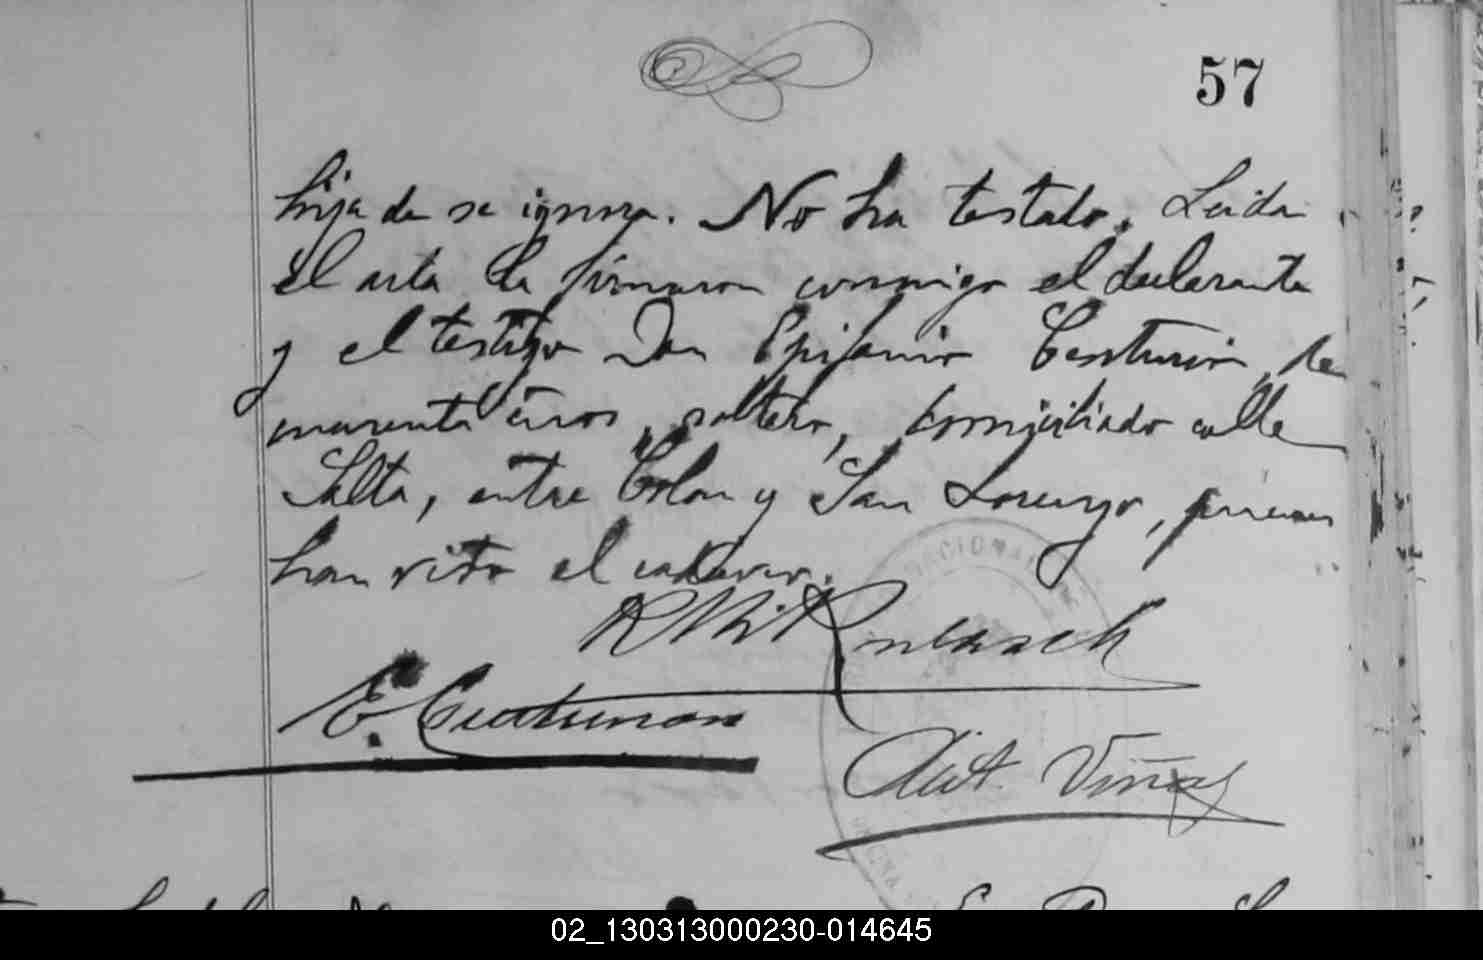 57
hija de se ignora. No ha testado. Leida
el acta la firmaron conmigo el declarante
y el testigo Don Epifanio Centurion, de
cuarenta años, soltero, domiciliado calle
Salta, entre Colon y San Lorenzo, quienes
han visto el cadaver.
E. Centurion
Viñas
02_130313000230-014645